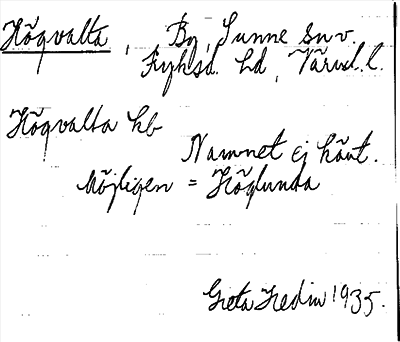 Högvalta, By, Sunne sn v.
Fryksd. hd, Värml. l.
Högvalta hb
Namnet ej hört.
Möjligen = Höglunda
Greta Hedin 1935.